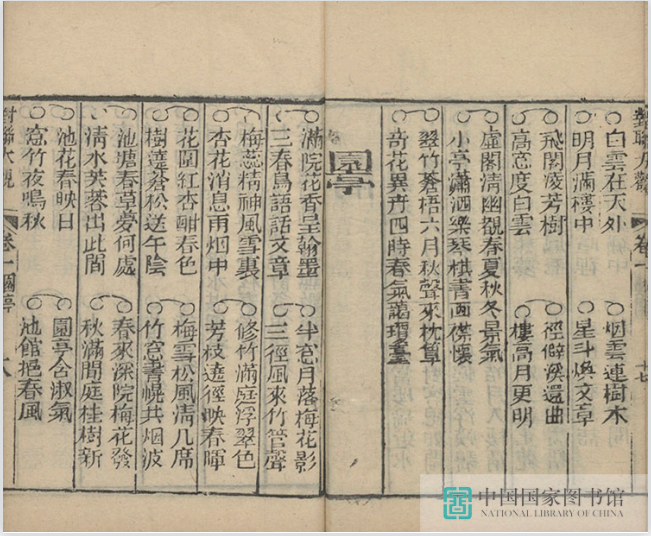 對聯大觀 卷一 十七
白雲在天外 烟雲連樹木
明月滿樓中 星斗煥文章
飛閣凌芳樹 徑僻溪還曲
高窓度白雲 樓高月更明
虛閣清幽觀春夏秋冬景氣
小亭瀟洒樂琴棋書畫襟懷
翠竹蒼梧六月秋聲來枕簟
奇花異卉四時春氣藹瑤臺
園亭
滿院花香呈翰墨 半窓月落梅花影
三春鳥語話文章 三徑風來竹管聲
梅蕊精神風雪裏 修竹滿庭浮翠色
杏花消息雨烟中 芳枝遶徑映春暉
花圃紅杏酣春色 梅雪松風清几席
樹遶蒼松送午陰 竹窓書幌共烟波
池塘春草夢何處 春來深院梅花發
清水芙蓉出此間 秋滿閒庭桂樹新
池花春映日 園亭含淑氣
窓竹夜鳴秋 池館挹春風
對聯大觀 卷一園亭
中国国家图书馆
NATIONAL LIBRARY OF CHINA